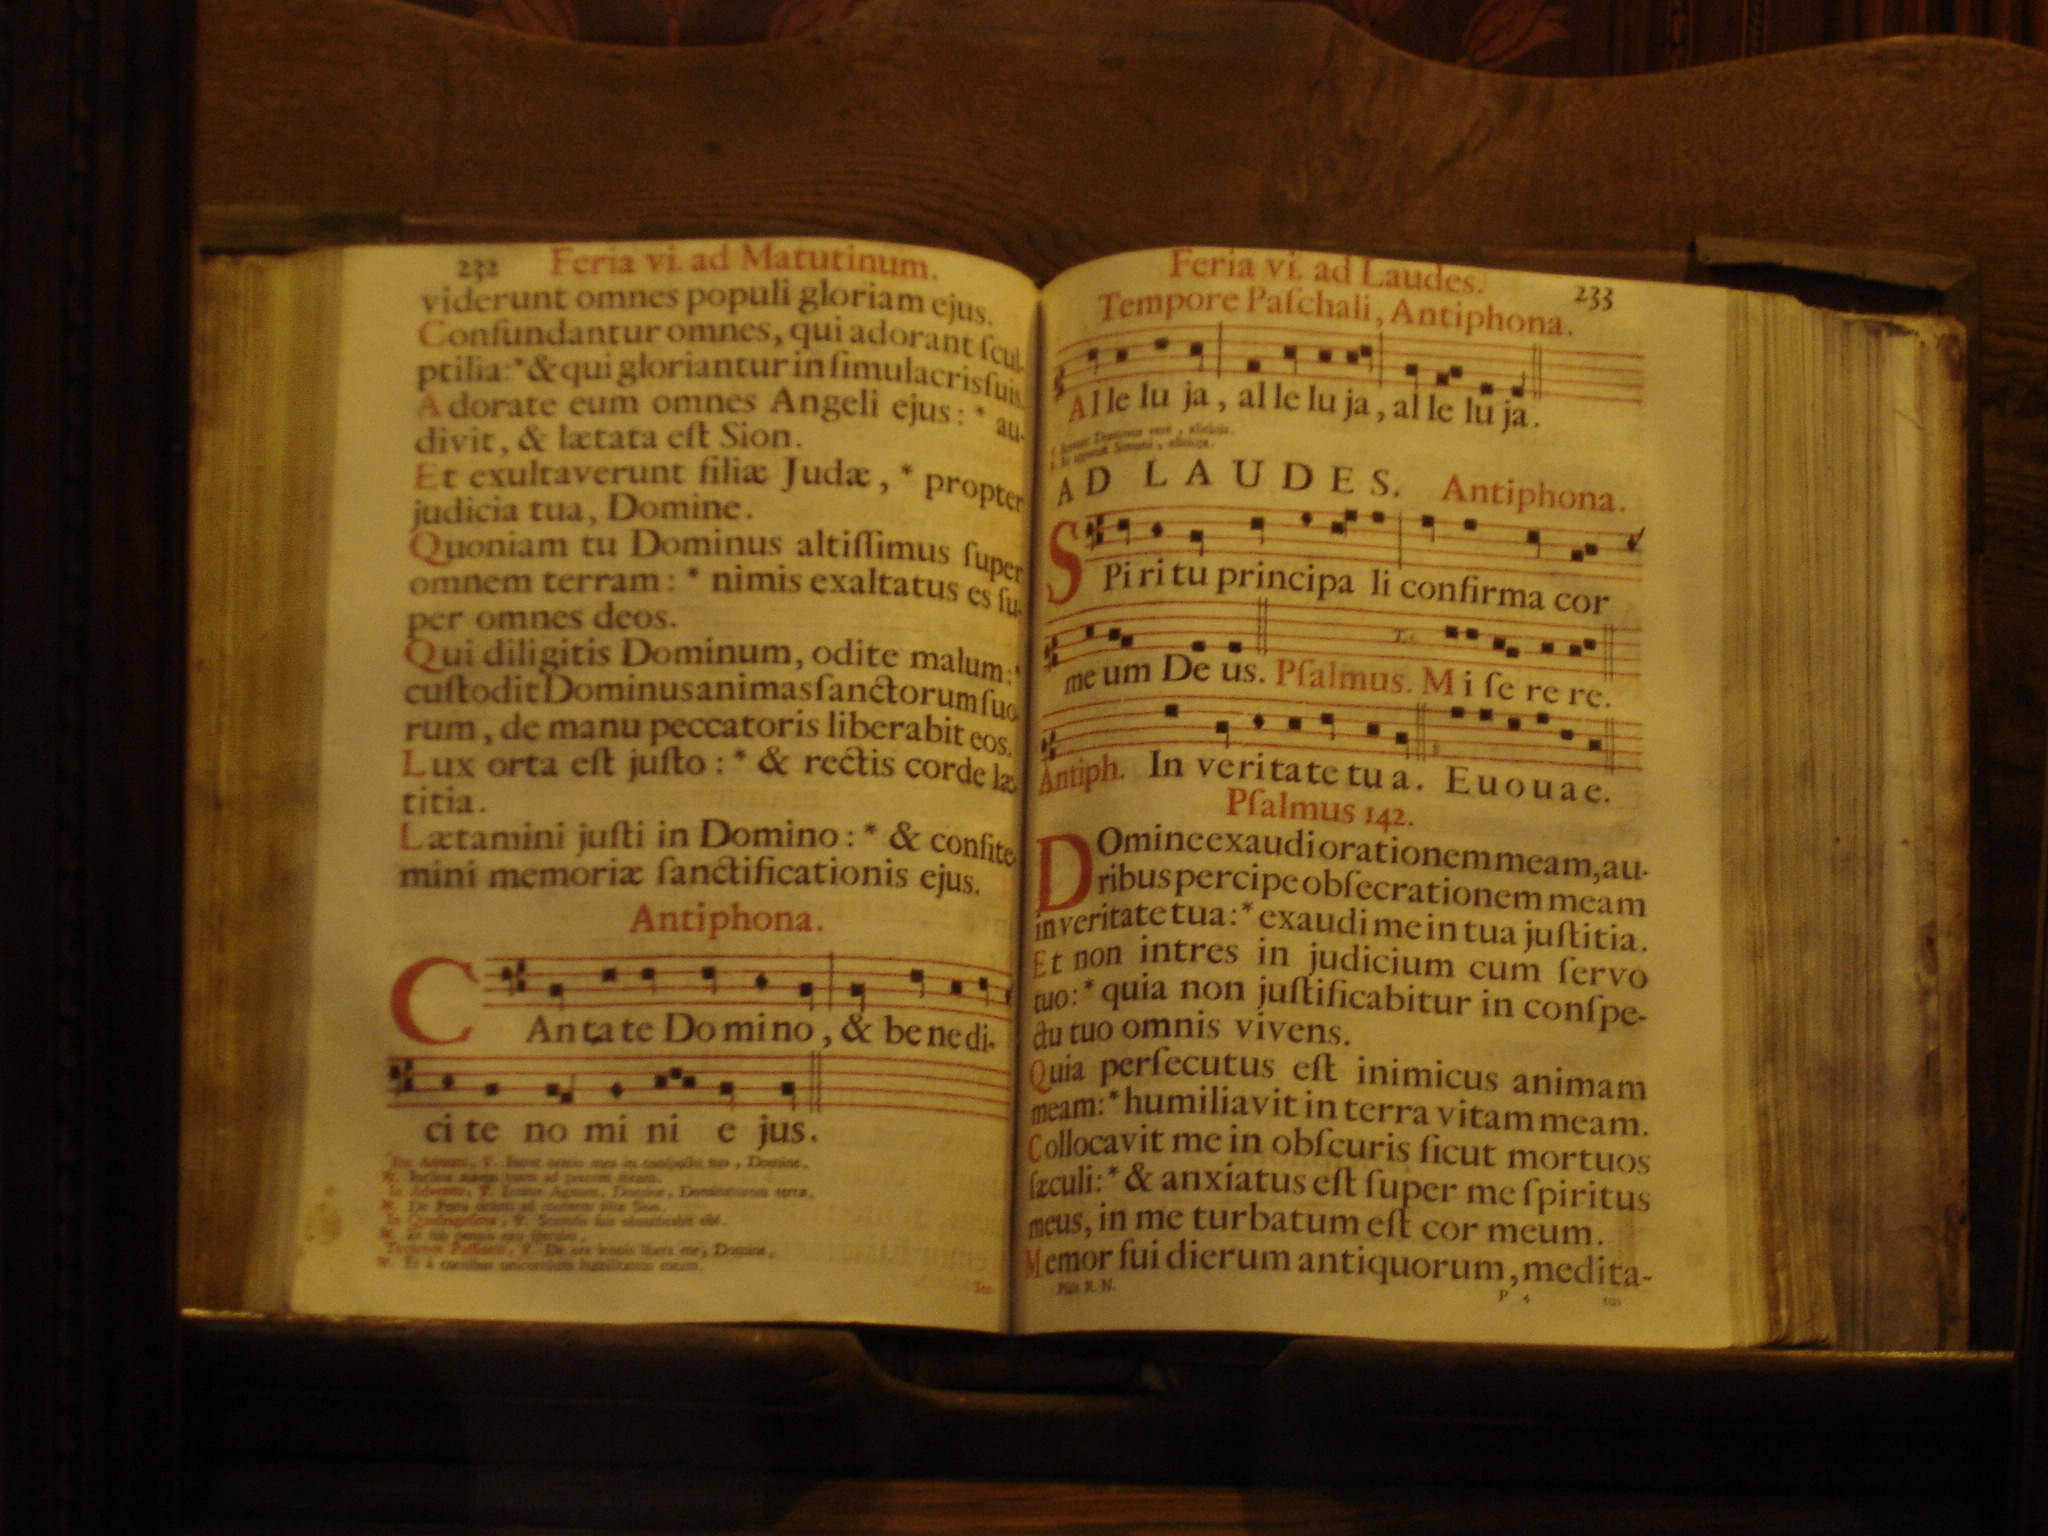 232 Feria vi. ad Matutinum.
viderunt omnes populi gloriam ejus.
Confundantur omnes, qui adorant ſcul-
ptilia:* & qui gloriantur in ſimulacris ſuis.
Adorate eum omnes Angeli ejus: * au-
divit, & lætata eſt Sion.
Et exultaverunt filiæ Judæ, * propter
judicia tua, Domine.
Quoniam tu Dominus altiſſimus ſuper
omnem terram: * nimis exaltatus es ſu-
per omnes deos.
Qui diligitis Dominum, odite malum:*
cuſtodit Dominus animas ſanctorum ſuo
rum, de manu peccatoris liberabit eos.
Lux orta eſt juſto: * & rectis corde læ
titia.
Lætamini juſti in Domino: * & confite
mini memoriæ ſanctificationis ejus.
Antiphona.
CAn ta te Do mino, & be ne di-
ci te no mi ni e jus.
In Adventu, ℣. Domine,
℟. De Petra
In Quadrageſima, ℣.
℟. Et ſub pennis ejus
Tempore Paſſionis, ℣. De ore leonis libera me, Domine,
℟. Et à cornibus unicornium humilitatem meam.
Feria vi. ad Laudes. 233
Tempore Paſchali, Antiphona.
Al le lu ja, al le lu ja, al le lu ja.
AD LAUDES. Antiphona.
SPi ri tu principa li confirma cor
me um De us. Pſalmus. M i ſe re re.
Antiph. In veritate tu a. E u o u a e.
Pſalmus 142.
DOmine exaudi orationem meam, au-
ribus percipe obſecrationem meam
in veritate tua:* exaudi me in tua juſtitia.
Et non intres in judicium cum ſervo
tuo:* quia non juſtificabitur in conſpe-
ctu tuo omnis vivens.
Quia perſecutus eſt inimicus animam
meam:* humiliavit in terra vitam meam.
Collocavit me in obſcuris ſicut mortuos
ſæculi:* & anxiatus eſt ſuper me ſpiritus
meus, in me turbatum eſt cor meum.
Memor fui dierum antiquorum, medita-
R. N. P 4